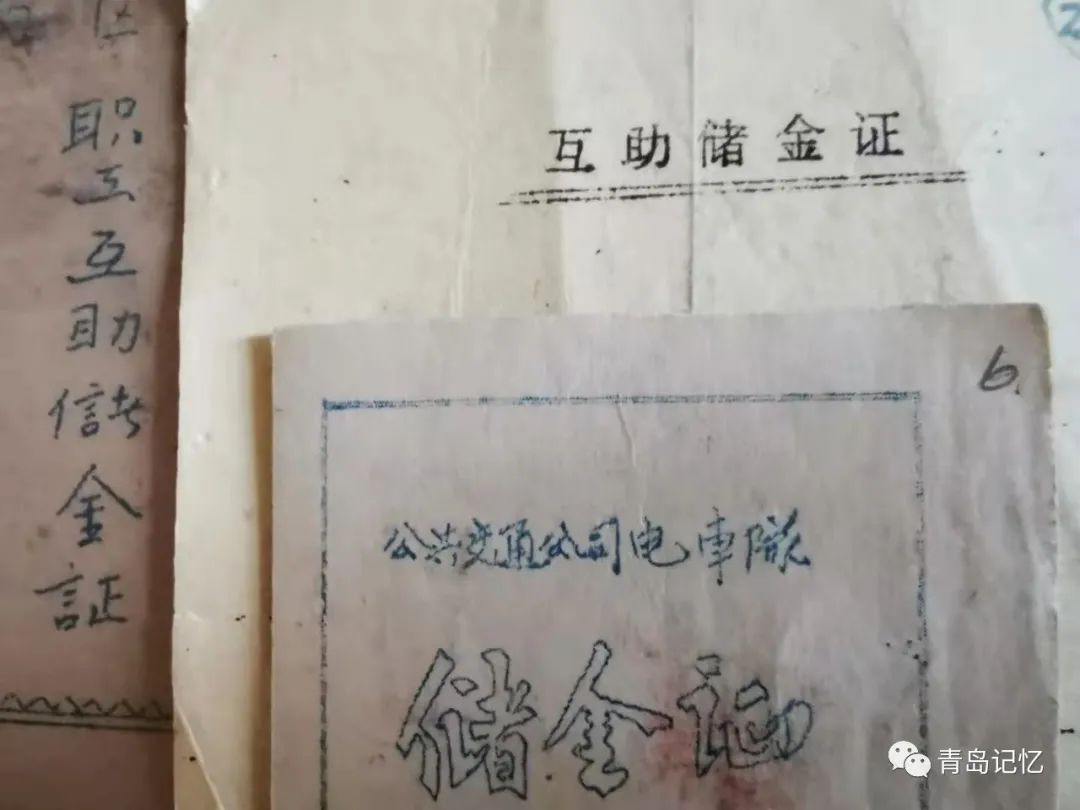 区
职工互助储金証
互助储金证
2
6.
公共交通公司电車隊
储金证
青岛记忆